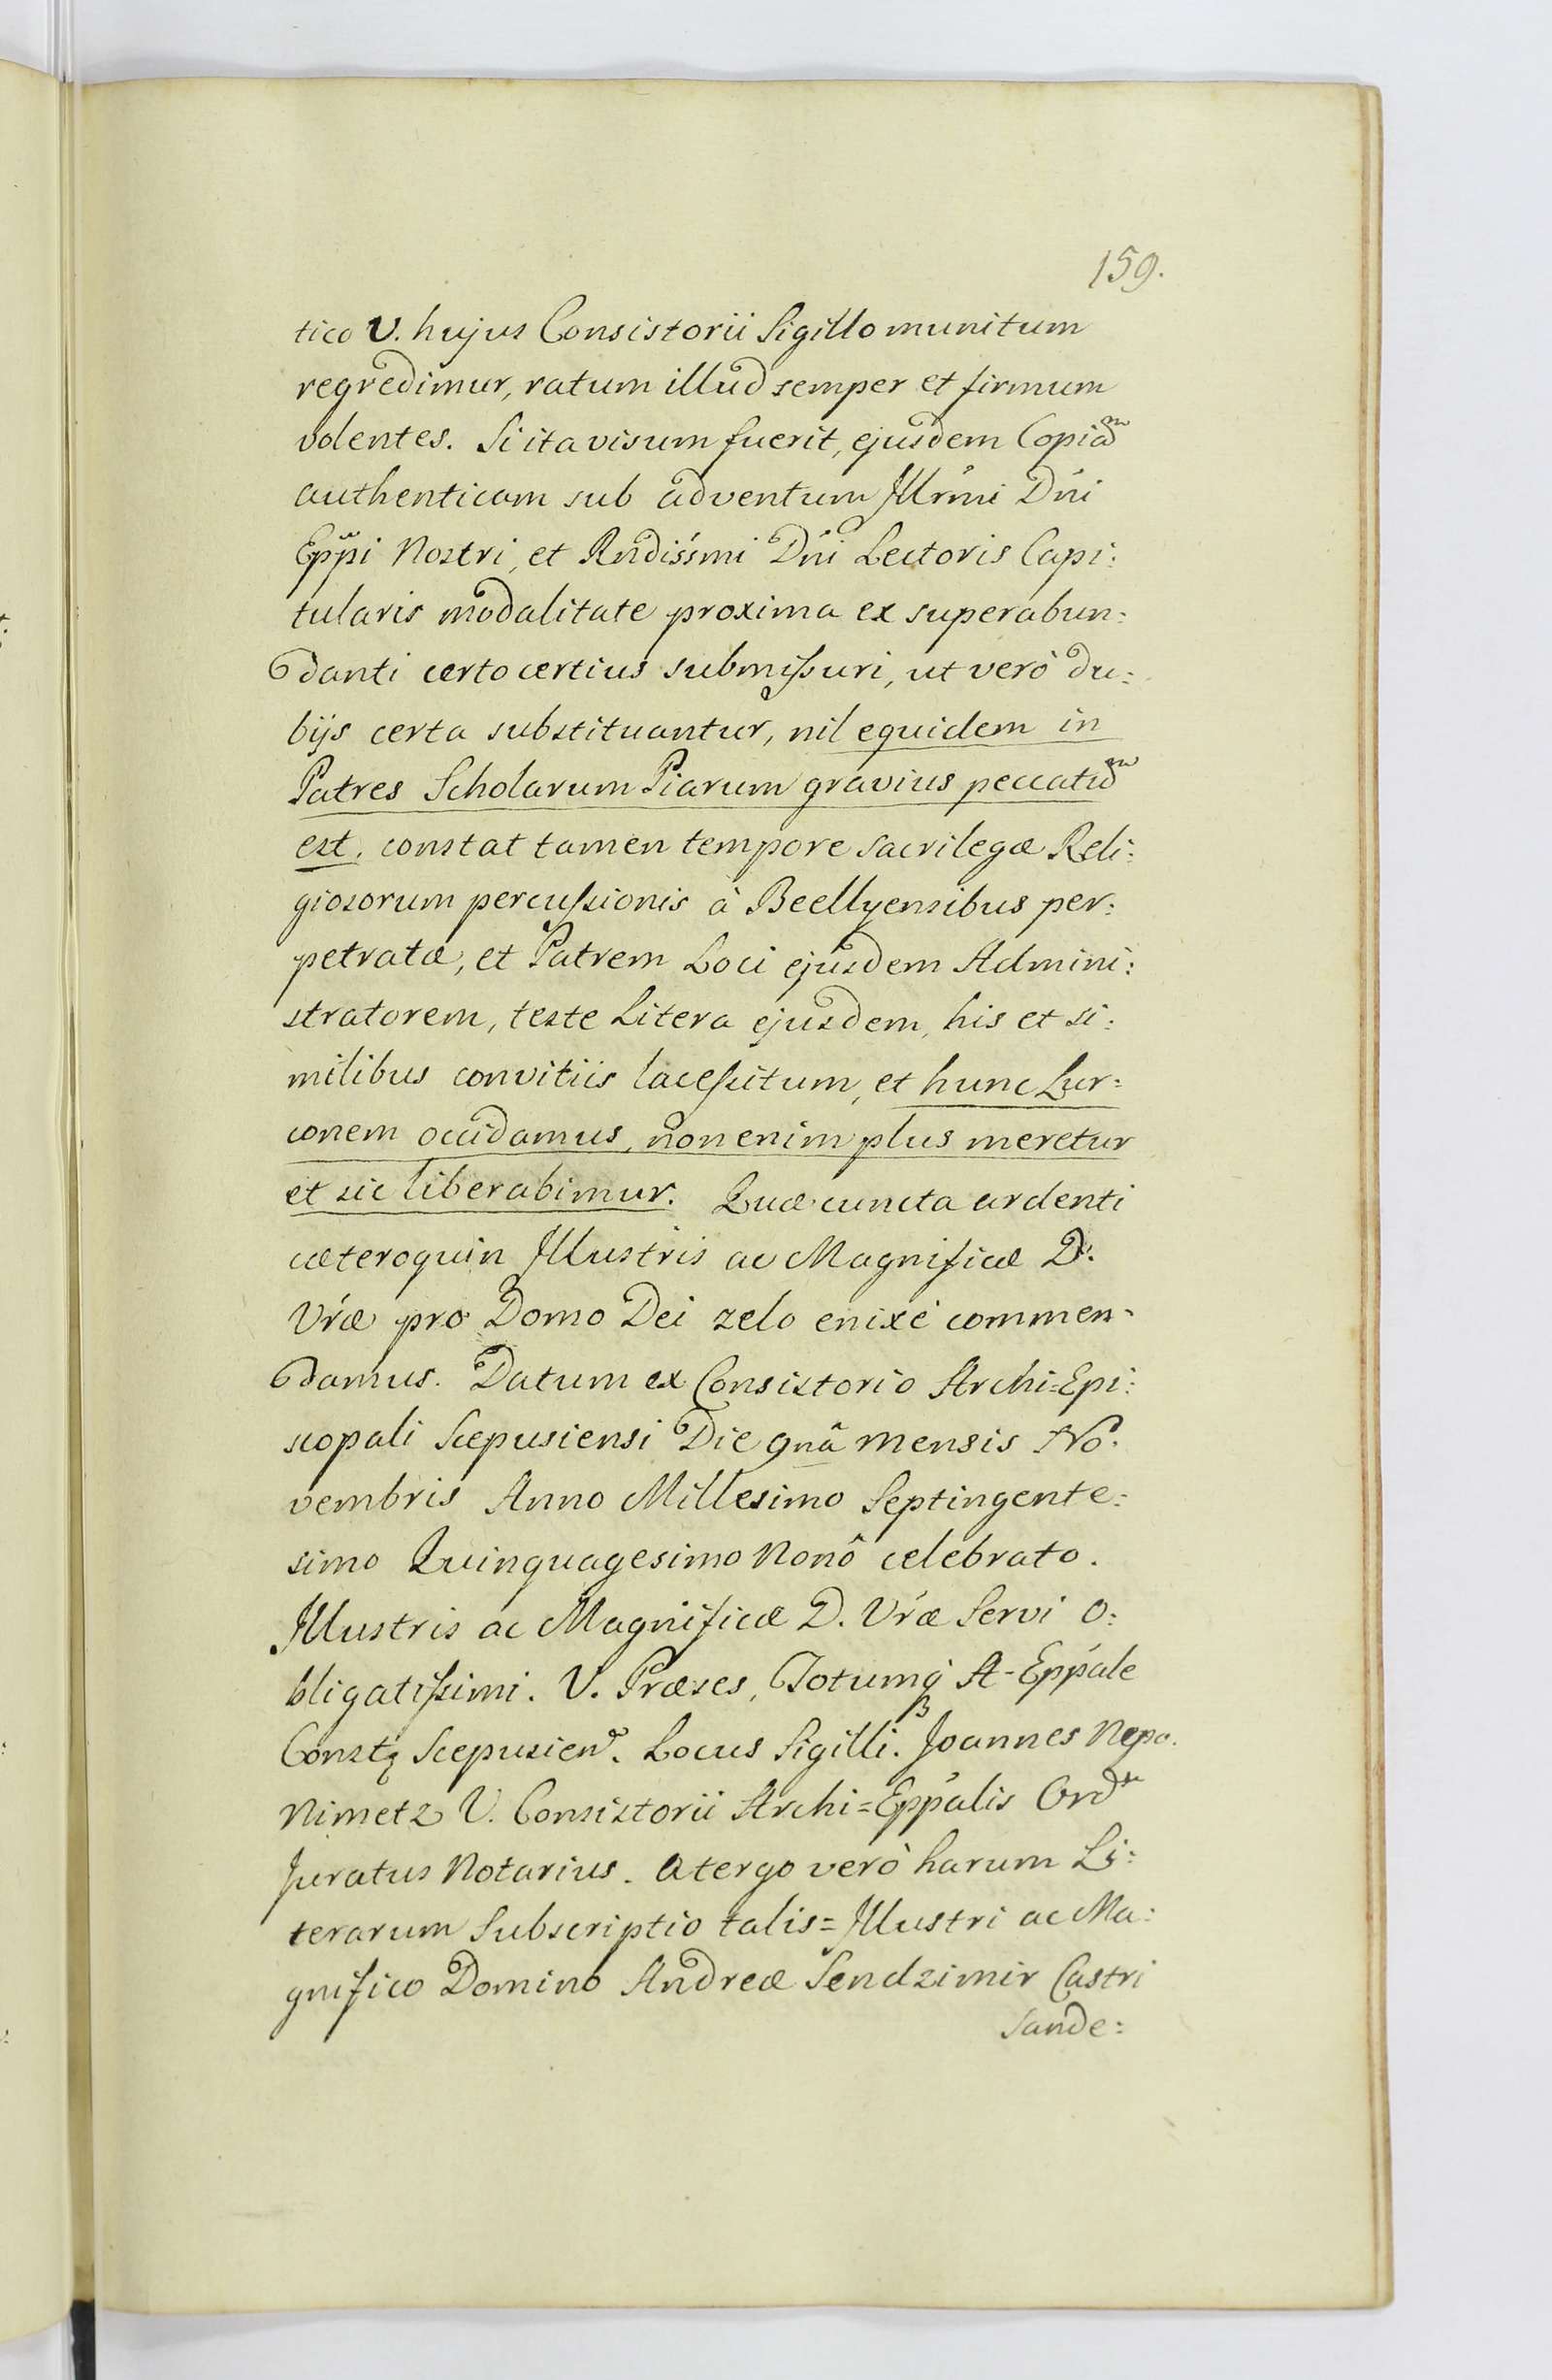 159.
tico V. hujus Consistorii Sigillo munitum
regredimur, ratum illud semper et firmum
volentes. Si ita visum fuerit, ejusdem Copiam
authenticam sub adventum Illrmi Dni
Eppi Nostri, et Rndissmi Dni Lectoris Capi:
tularis modalitate proxima ex superabun:
danti certo certius submissuri, ut verò du:
bijs certa substituantur, nil equidem in
Patres Scholarum Piarum gravius peccatum
est. constat tamen tempore sacrilegæ Reli:
giosorum percussionis à Beellyensibus per:
petratæ, et Patrem Loci ejusdem Admini:
stratorem, teste Litera ejusdem, his et si:
milibus convitiis lacessitum, et hunc Lur:
conem occidamus, non enim plus meretur
et sic liberabimur. Quæ cuncta ardenti
cæteroquin Illustris ac Magnificæ D.
Vræ pro Domo Dei zelo enixè commen:
damus. Datum ex Consistorio Archi=Epi:
scopali Scepusiensi Die 9nâ mensis No:
vembris Anno Millesimo Septingente:
simo Quinquagesimo Nonô celebrato.
Illustris ac Magnificæ D. Vræ Servi o:
bligatissimi. V. Præses, Totumq A-Eppale
Scepusien. Locus Sigilli. Joannes Nepo.
Nimetz V. Consistorii Archi=Eppalis Ord
Juratus Notarius. A tergo verò harum Li:
terarum Subscriptio talis= Illustri ac Ma:
gnifico Domino Andreæ Sendzimir Castri
Sande: